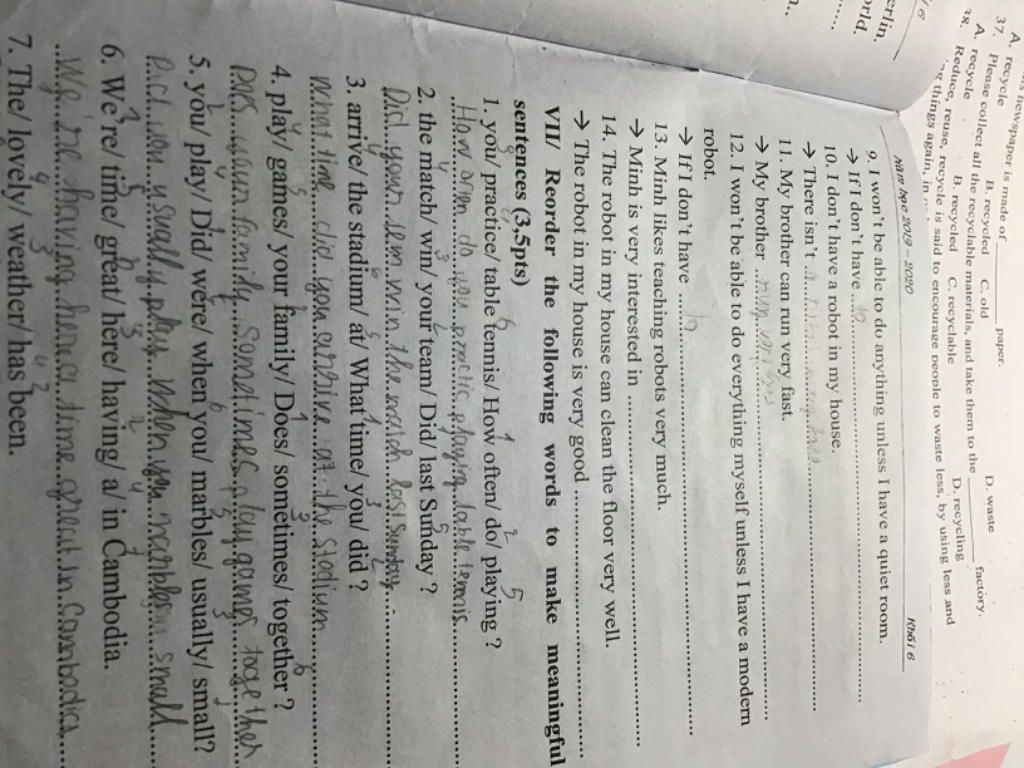 A. recycle B. recycled C. old D. waste
37. Please collect all the recyclable materials, and take them to the factory.
A. recycle B. recycled C. recyclable D. recycling
Reduce, reuse, recycle is said to encourage people to waste less, by using less and
things again, in
erlin.
orld.
6
Năm học 2019 – 2020 Khối 6
9. I won't be able to do anything unless I have a quiet room.
→ If I don't have
10. I don't have a robot in my house.
→ There isn't
11. My brother can run very fast.
→ My brother
12. I won't be able to do everything myself unless I have a modern
robot.
→ If I don't have
13. Minh likes teaching robots very much.
→ Minh is very interested in
14. The robot in my house can clean the floor very well.
→ The robot in my house is very good
VII/ Reorder the following words to make meaningful
sentences (3,5pts)
1. you/ practice/ table tennis/ How often/ do/ playing ?
How often do you practic playing table tennis
2. the match/ win/ your team/ Did/ last Sunday ?
Did your team win the match last Sunday
3. arrive/ the stadium/ at/ What time/ you/ did ?
What time did you arrive at the stadium
4. play/ games/ your family/ Does/ sometimes/ together ?
Does your family sometimes play games together
5. you/ play/ Did/ were/ when you/ marbles/ usually/ small?
Did you usually play when you marbles small
6. We're/ time/ great/ here/ having/ a/ in Cambodia.
We're having here a time great in Cambodia
7. The/ lovely/ weather/ has been.